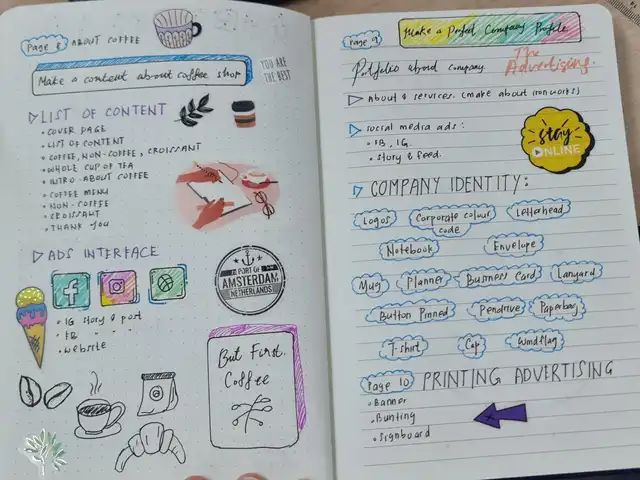 Page 8 ABOUT COFFEE
Make a content about coffee shop
YOU ARE
THE BEST
LIST OF CONTENT
• COVER PAGE
• LIST OF CONTENT
• COFFEE, NON-COFFEE, CROISSANT
• WHOLE CUP OF TEA
• INTRO-ABOUT COFFEE
• COFFEE MENU
• NON-COFFEE
• CROISSANT
• THANK YOU
ADS INTERFACE
• IG story & post
• FB " "
• Website
PORT OF
AMSTERDAM
NETHERLANDS
But First
Coffee
Page 9
Make a Perfect Company Profile
Portfolio about company.
The
Advertising.
About & services. (make about ironworks)
social media ads:
• FB, IG.
• Story & feed.
stay
ONLINE
COMPANY IDENTITY:
Logos Corporate colour code Letterhead
Notebook Envelope
Mug Planner Business Card Lanyard
Button Pinned Pendrive Paperbag
T-shirt Cap Windflag
Page 10 PRINTING ADVERTISING
• Banner
• Bunting
• Signboard